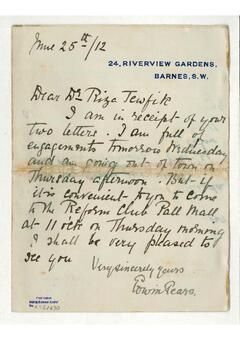 June 25th/12
24, RIVERVIEW GARDENS,
BARNES, S.W.
Dear Dr Riza Tewfik
I am in receipt of your
two letters. I am full of
engagements tomorrow Wednesday
and am going out of town on
Thursday afternoon. But if
it is convenient to you to come
to the Reform Club Pall Mall
at 11 o'ck on Thursday morning
I shall be very pleased to
see you
Very sincerely yours
Edwin Pears.